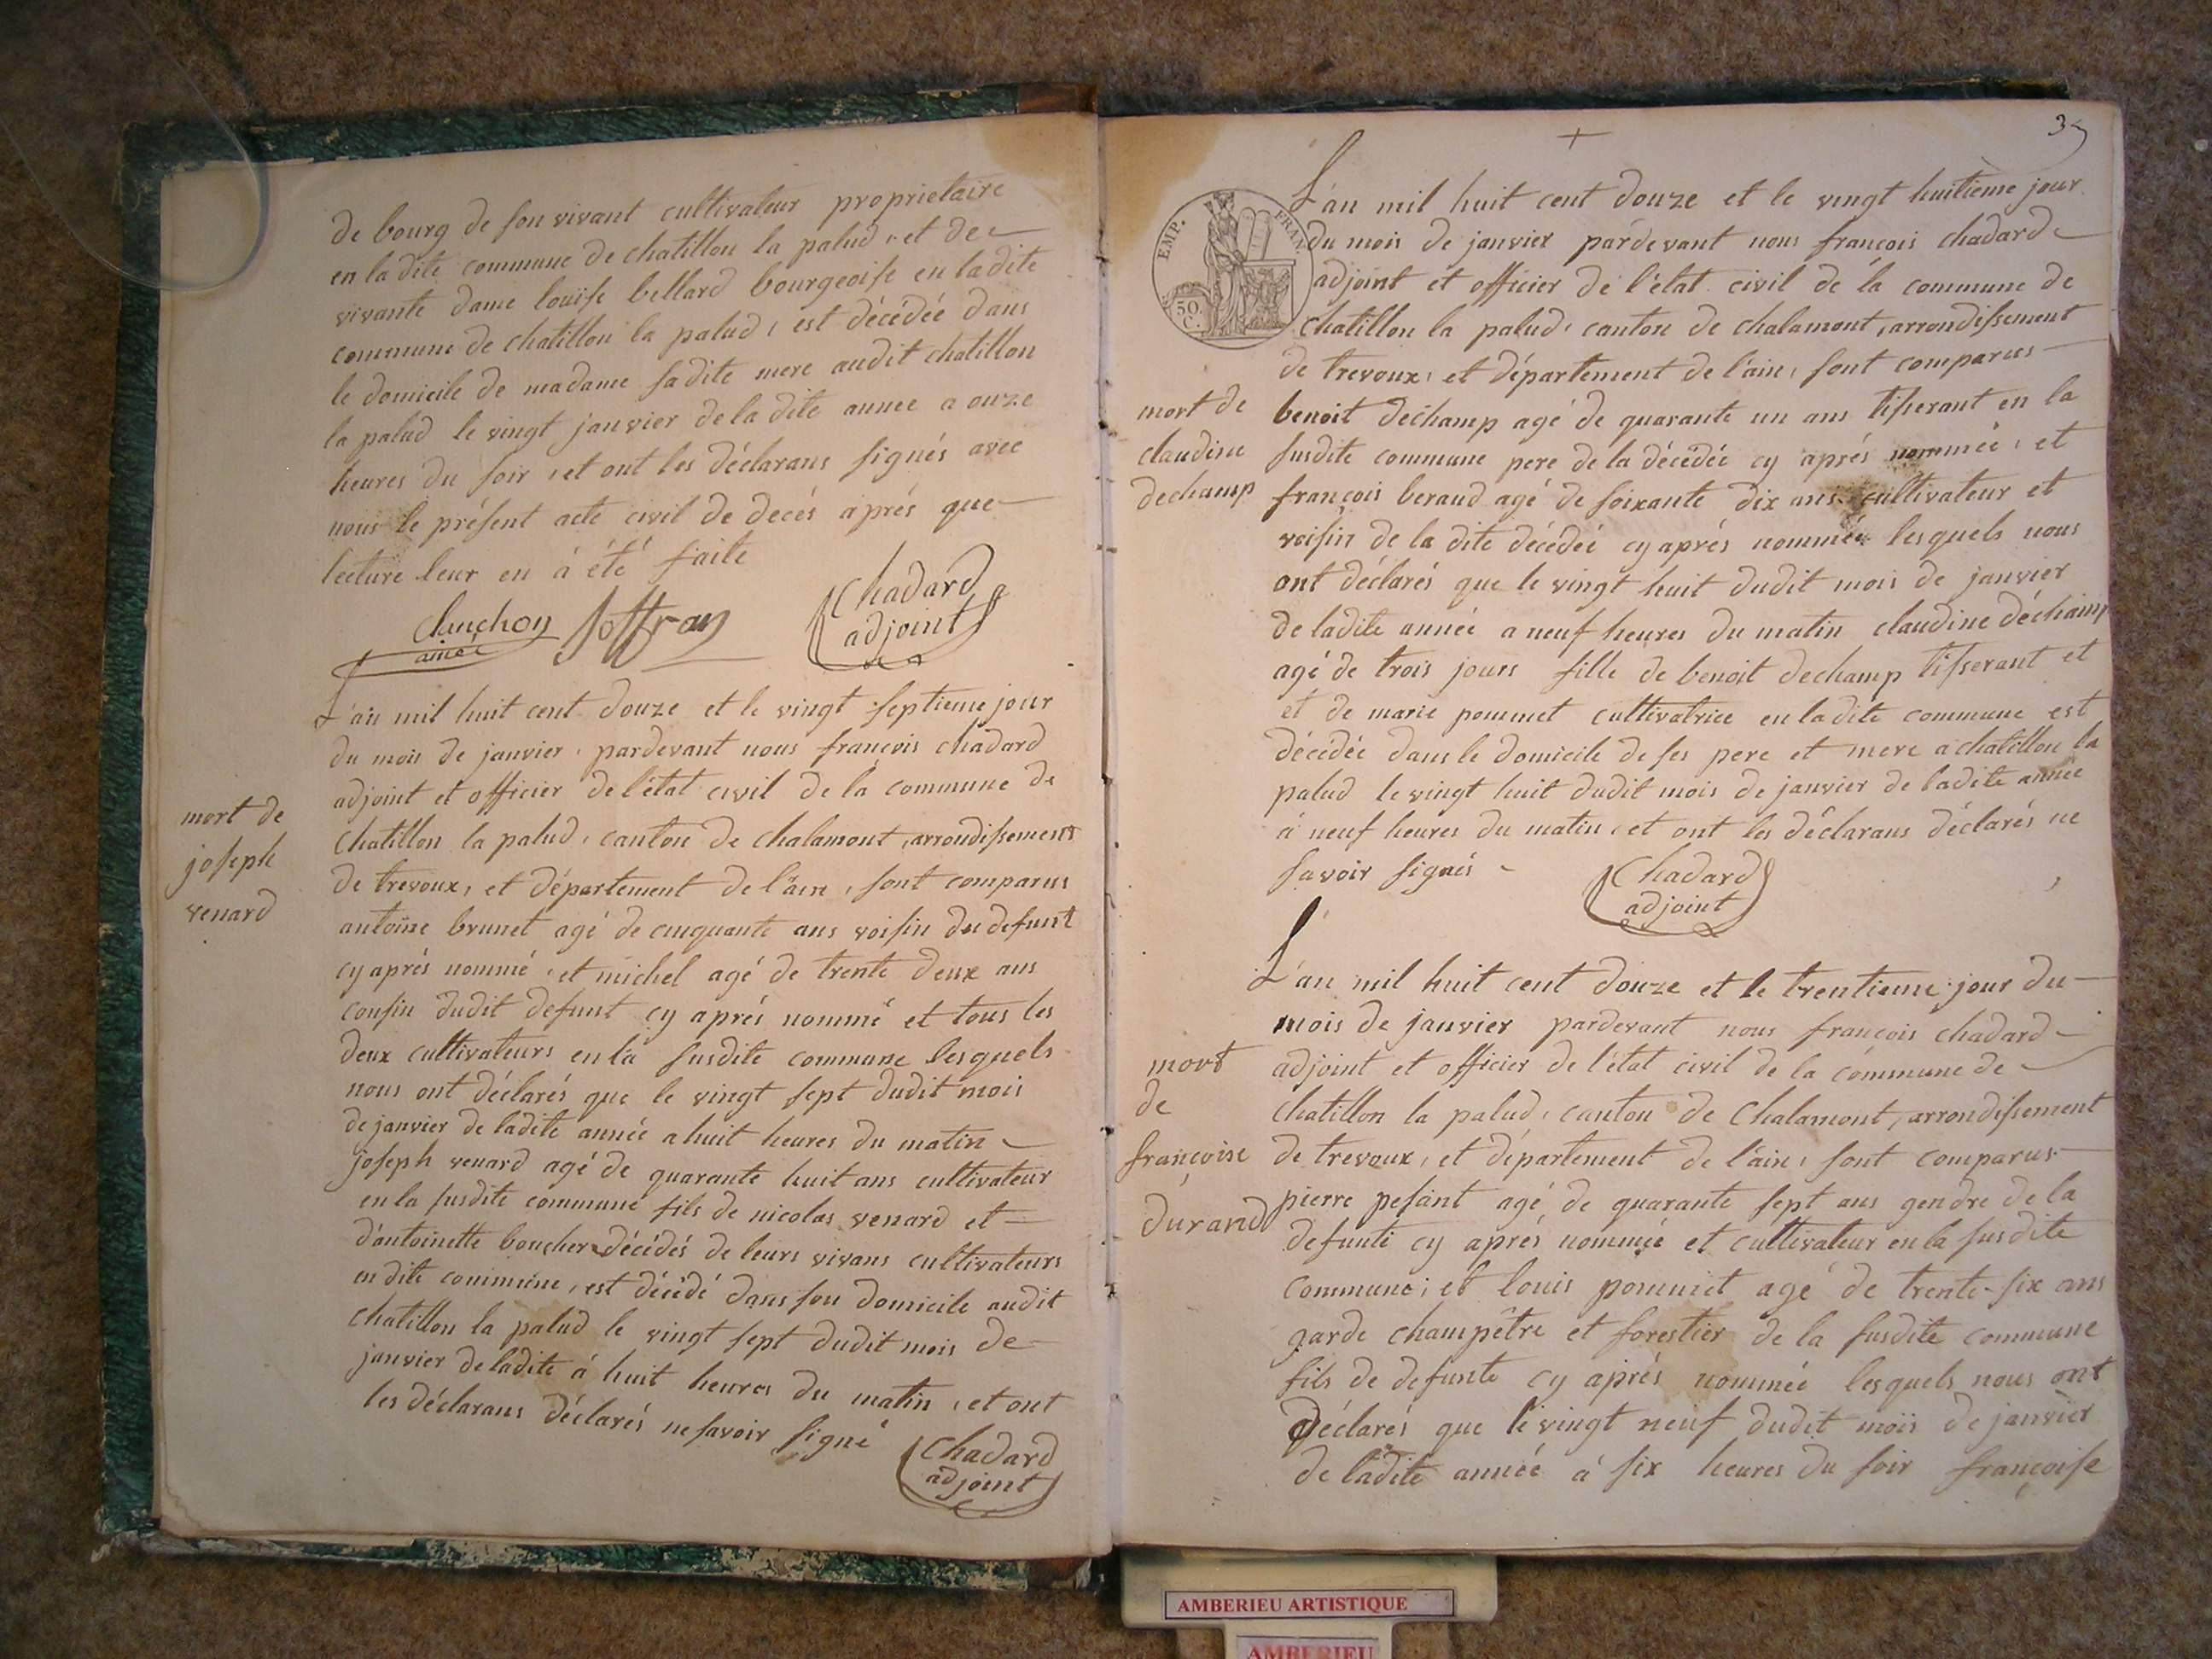 de bourg de son vivant cultivateur proprietaire
en la dite commune de chatillon la palud, et de
vivante dame louise bellard bourgeoise en ladite
commune de chatillon la palud, est décédée dans
le domicile de madame sadite mere audit chatillon
la palud le vingt janvier de la dite annee a onze
heures du soir, et ont les déclarans signés avec
nous le présent acte civil de decés aprés que
lecture leur en à été faite
Chadard
adjoint
ainé
L'an mil huit cent douze et le vingt septieme jour
du mois de janvier, pardevant nous françois chadard
adjoint et officier de l'état civil de la commune de
chatillon la palud, canton de chalamont, arrondissement
de trevoux, et département de l'ain, sont comparus
antoine brunet agé de cinquante ans voisin du defunt
cy aprés nommé, et michel agé de trente deux ans
cousin dudit defunt cy aprés nommé et tous les
deux cultivateurs en la susdite commune lesquels
nous ont déclarés que le vingt sept dudit mois
de janvier de ladite année a huit heures du matin
joseph venard agé de quarante huit ans cultivateur
en la susdite commune fils de nicolas venard et
d'antoinette boucher décédés de leurs vivans cultivateurs
en dite commune, est décédé dans son domicile audit
chatillon la palud le vingt sept dudit mois de
janvier de ladite à huit heures du matin, et ont
les déclarans déclarés ne savoir signé
Chadard
adjoint
mort de
joseph
venard
3
EMP. FRAN.
50
C.
L'an mil huit cent douze et le vingt huitième jour
du mois de janvier pardevant nous françois chadard
adjoint et officier de l'état civil de la commune de
chatillon la palud, canton de chalamont, arrondissement
de trevoux, et département de l'ain, sont comparus
benoit dechamp agé de quarante un ans tisserant en la
susdite commune pere de la décédée cy aprés nommée, et
françois beraud agé de soixante dix ans cultivateur et
voisin de la dite décédée cy aprés nommée lesquels nous
ont déclarés que le vingt huit dudit mois de janvier
de ladite année a neuf heures du matin claudine déchamp
agé de trois jours fille de benoit dechamp tisserant et
et de marie pommet cultivatrice en la dite commune est
décédée dans le domicile de ses pere et mere a chatillon la
palud le vingt huit dudit mois de janvier de ladite année
à neuf heures du matin, et ont les déclarans déclarés ne
savoir signés
Chadard
adjoint
mort de
claudine
dechamp
L'an mil huit cent douze et le trentieme jour du
mois de janvier pardevant nous françois chadard
adjoint et officier de l'état civil de la commune de
chatillon la palud, canton de Chalamont, arrondissement
de trevoux, et département de l'ain, sont comparus
pierre pesant agé de quarante sept ans gendre de la
defunte cy aprés nommée et cultivateur en la susdite
commune, et louis pommet agé de trente-six ans
garde champêtre et forestier de la susdite commune
fils de defunte cy aprés nommée lesquels nous ont
déclarés que le vingt neuf dudit mois de janvier
de ladite année à six heures du soir françoise
mort
de
françoise
durand
AMBERIEU ARTISTIQUE
AMBERIEU